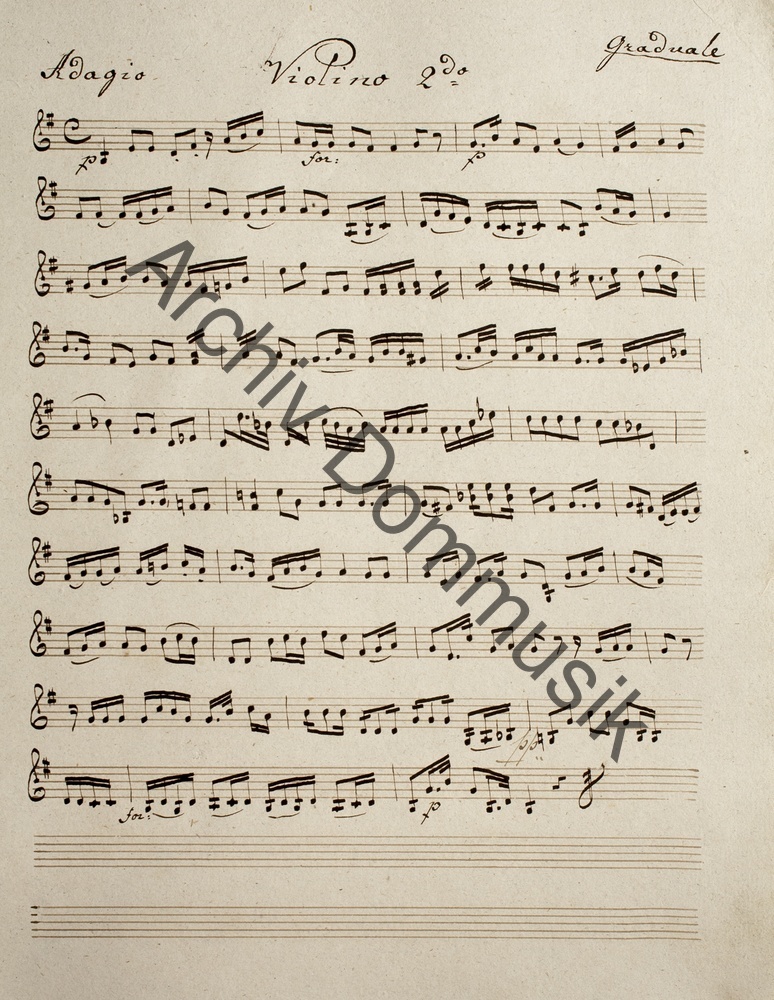 Graduale
Adagio Violino 2do
p for: p
pp
for: p
Archiv Dommusik